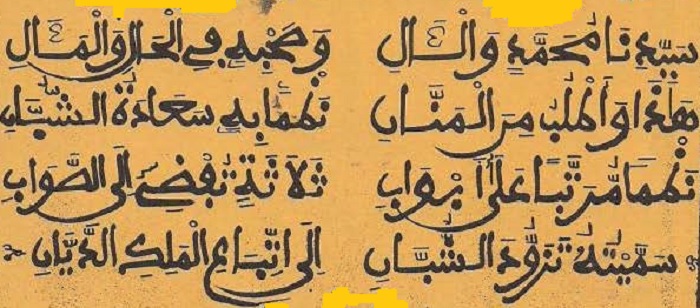 سَيِّدِنَا مُحَمَّدٍ وَالْـَالِ وَصَحْبِهِ فِي الْحَالِ وَالْمَـَالِ
هَٰذَا وَأَطْلُبُ مِنَ الْمَنَّانِ نَظْمًا بِهِ سَعَادَةُ الشُّبَّانِ
نَظْمًا مُرَتَّبًا عَلَى أَبْوَابِ ثَلَاثَةٍ تُفْضِي إِلَى الصَّوَابِ
سَمَّيْتُهُ تَزَوُّدَ الشُّبَّانِ إِلَى اتِّبَاعِ الْمَلِكِ الدَّيَّانِ